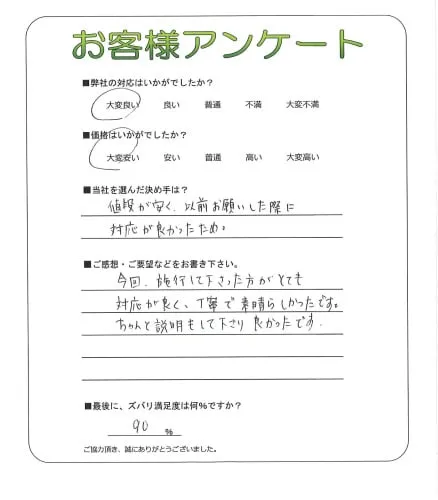 お客様アンケート
■弊社の対応はいかがでしたか？
大変良い 良い 普通 不満 大変不満
■価格はいかがでしたか？
大変安い 安い 普通 高い 大変高い
■当社を選んだ決め手は？
値段が安く、以前お願いした際に
対応が良かったため。
■ご感想・ご要望などをお書き下さい。
今回、施行して下さった方がとても
対応が良く、丁寧で素晴らしかったです。
ちゃんと説明もして下さり良かったです.
■最後に、ズバリ満足度は何％ですか？
90 %
ご協力頂き、誠にありがとうございました。